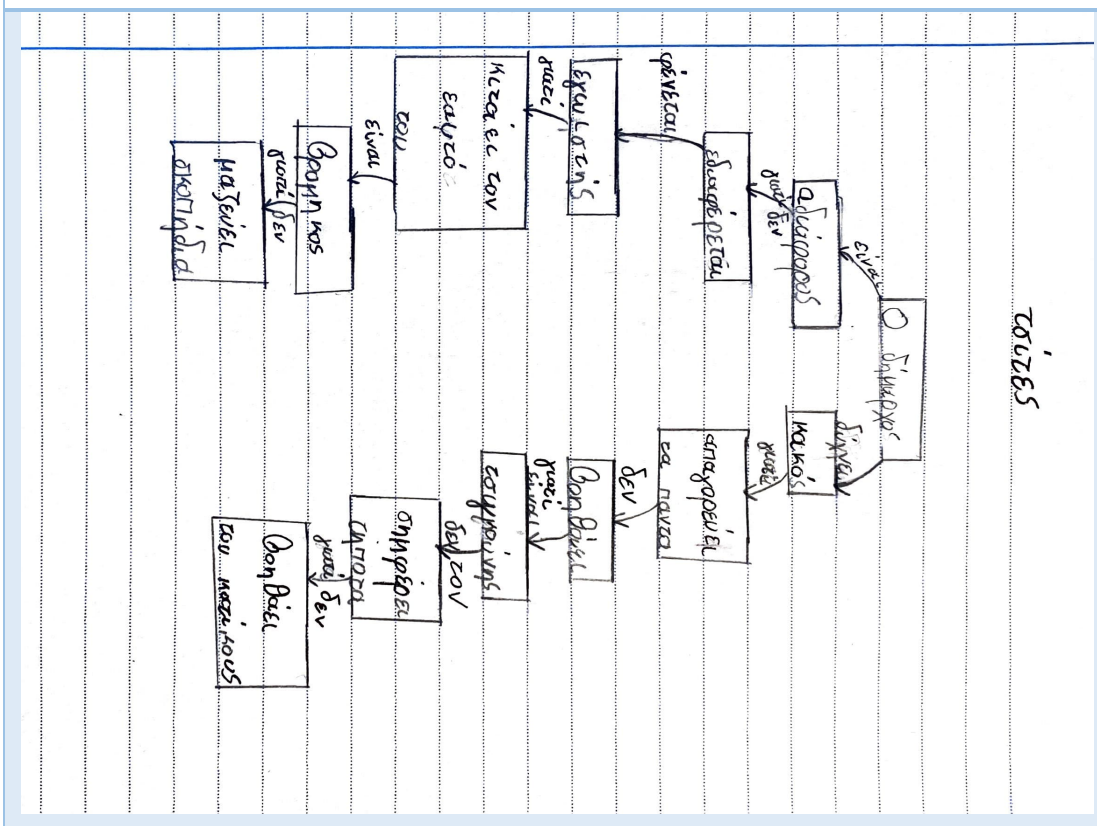 τσίτες
Ο δήμαρχος
είναι
αδιάφορος
γιατί δεν
εδιαφέρεται
φένεται
εγωιστής
γιατί
κιτάει τον
εαυτό
του
είναι
βρομηκος
γιατί δεν
μαζεύει
σκοπήδια
δύχνει
κακός
γιατί
απαγορεύει
τα παντα
δεν
βοηθάει
γιατί
είναι
τσιγκούνης
δεν τον
σημφέρει
τηποτα
γιατί δεν
βοηθάει
του κατίκους